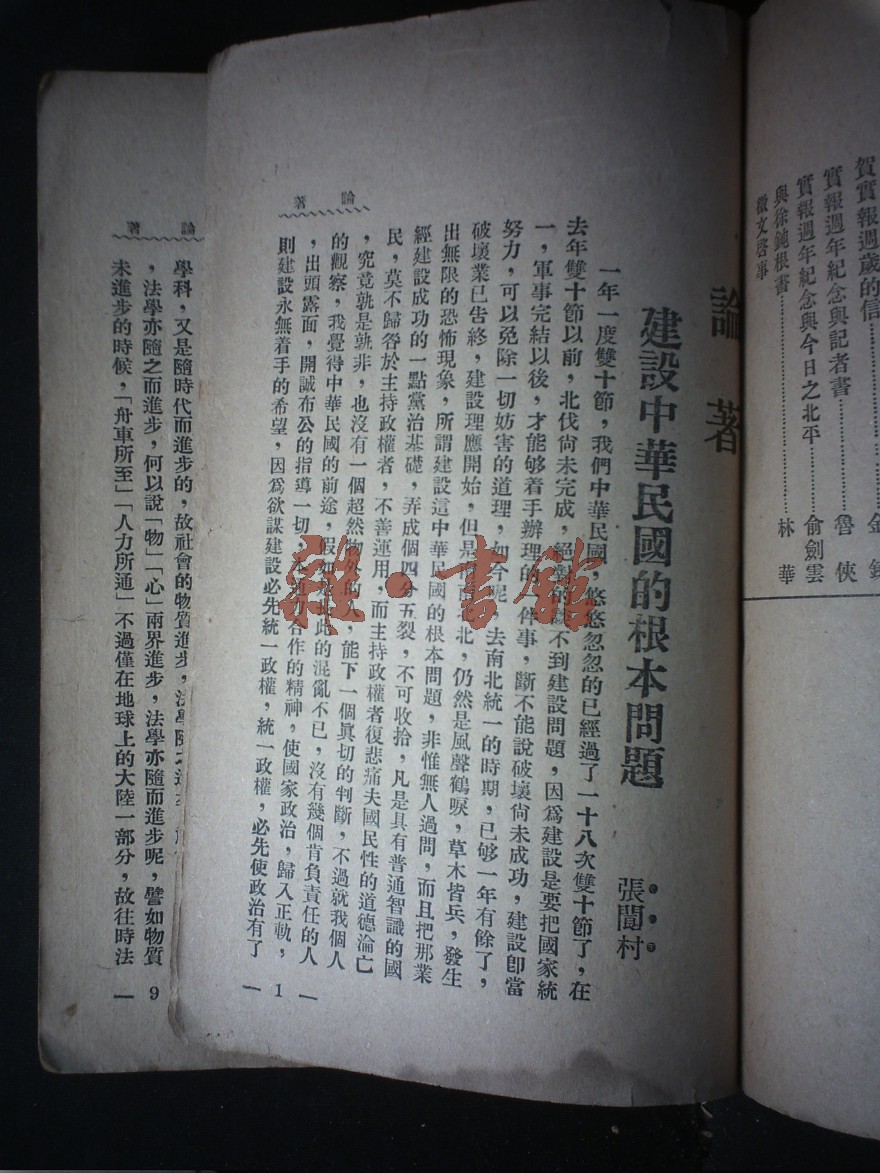 賀實報週歲的信
實報週年紀念與記者書……魯俠
實報週年紀念與今日之北平……俞劍雲
與徐鈍根書……林華
徵文啓事
論著
建設中華民國的根本問題
張聞村
一年一度雙十節，我們中華民國，悠悠忽忽的已經過了一十八次雙十節了，在
去年雙十節以前，北伐尚未完成，絕對的談不到建設問題，因爲建設是要把國家統
一，軍事完結以後，才能够着手辦理的一件事，斷不能說破壞尚未成功，建設卽當
努力，可以免除一切妨害的道理，如今呢，去南北統一的時期，已够一年有餘了，
破壞業已告終，建設理應開始，但是南北，仍然是風聲鶴唳，草木皆兵，發生
出無限的恐怖現象，所謂建設這中華民國的根本問題，非惟無人過問，而且把那業
經建設成功的一點黨治基礎，弄成個四分五裂，不可收拾，凡是具有普通智識的國
民，莫不歸咎於主持政權者，不善運用，而主持政權者復悲痛夫國民性的道德淪亡
，究竟孰是孰非，也沒有一個超然物外的人，能下一個眞切的判斷，不過就我個人
的觀察，我覺得中華民國的前途，假如此的混亂不已，沒有幾個肯負責任的人
，出頭露面，開誠布公的指導一切，本合作的精神，使國家政治，歸入正軌，
則建設永無着手的希望，因爲欲謀建設必先統一政權，統一政權，必先使政治有了
論著
— 1 —
論著
學科，又是隨時代而進步的，故社會的物質進步，法學隨之進
，法學亦隨之而進步，何以說「物」「心」兩界進步，法學亦隨而進步呢，譬如物質
未進步的時候，「舟車所至」「人力所通」不過僅在地球上的大陸一部分，故往時法
9 —
雜·書館